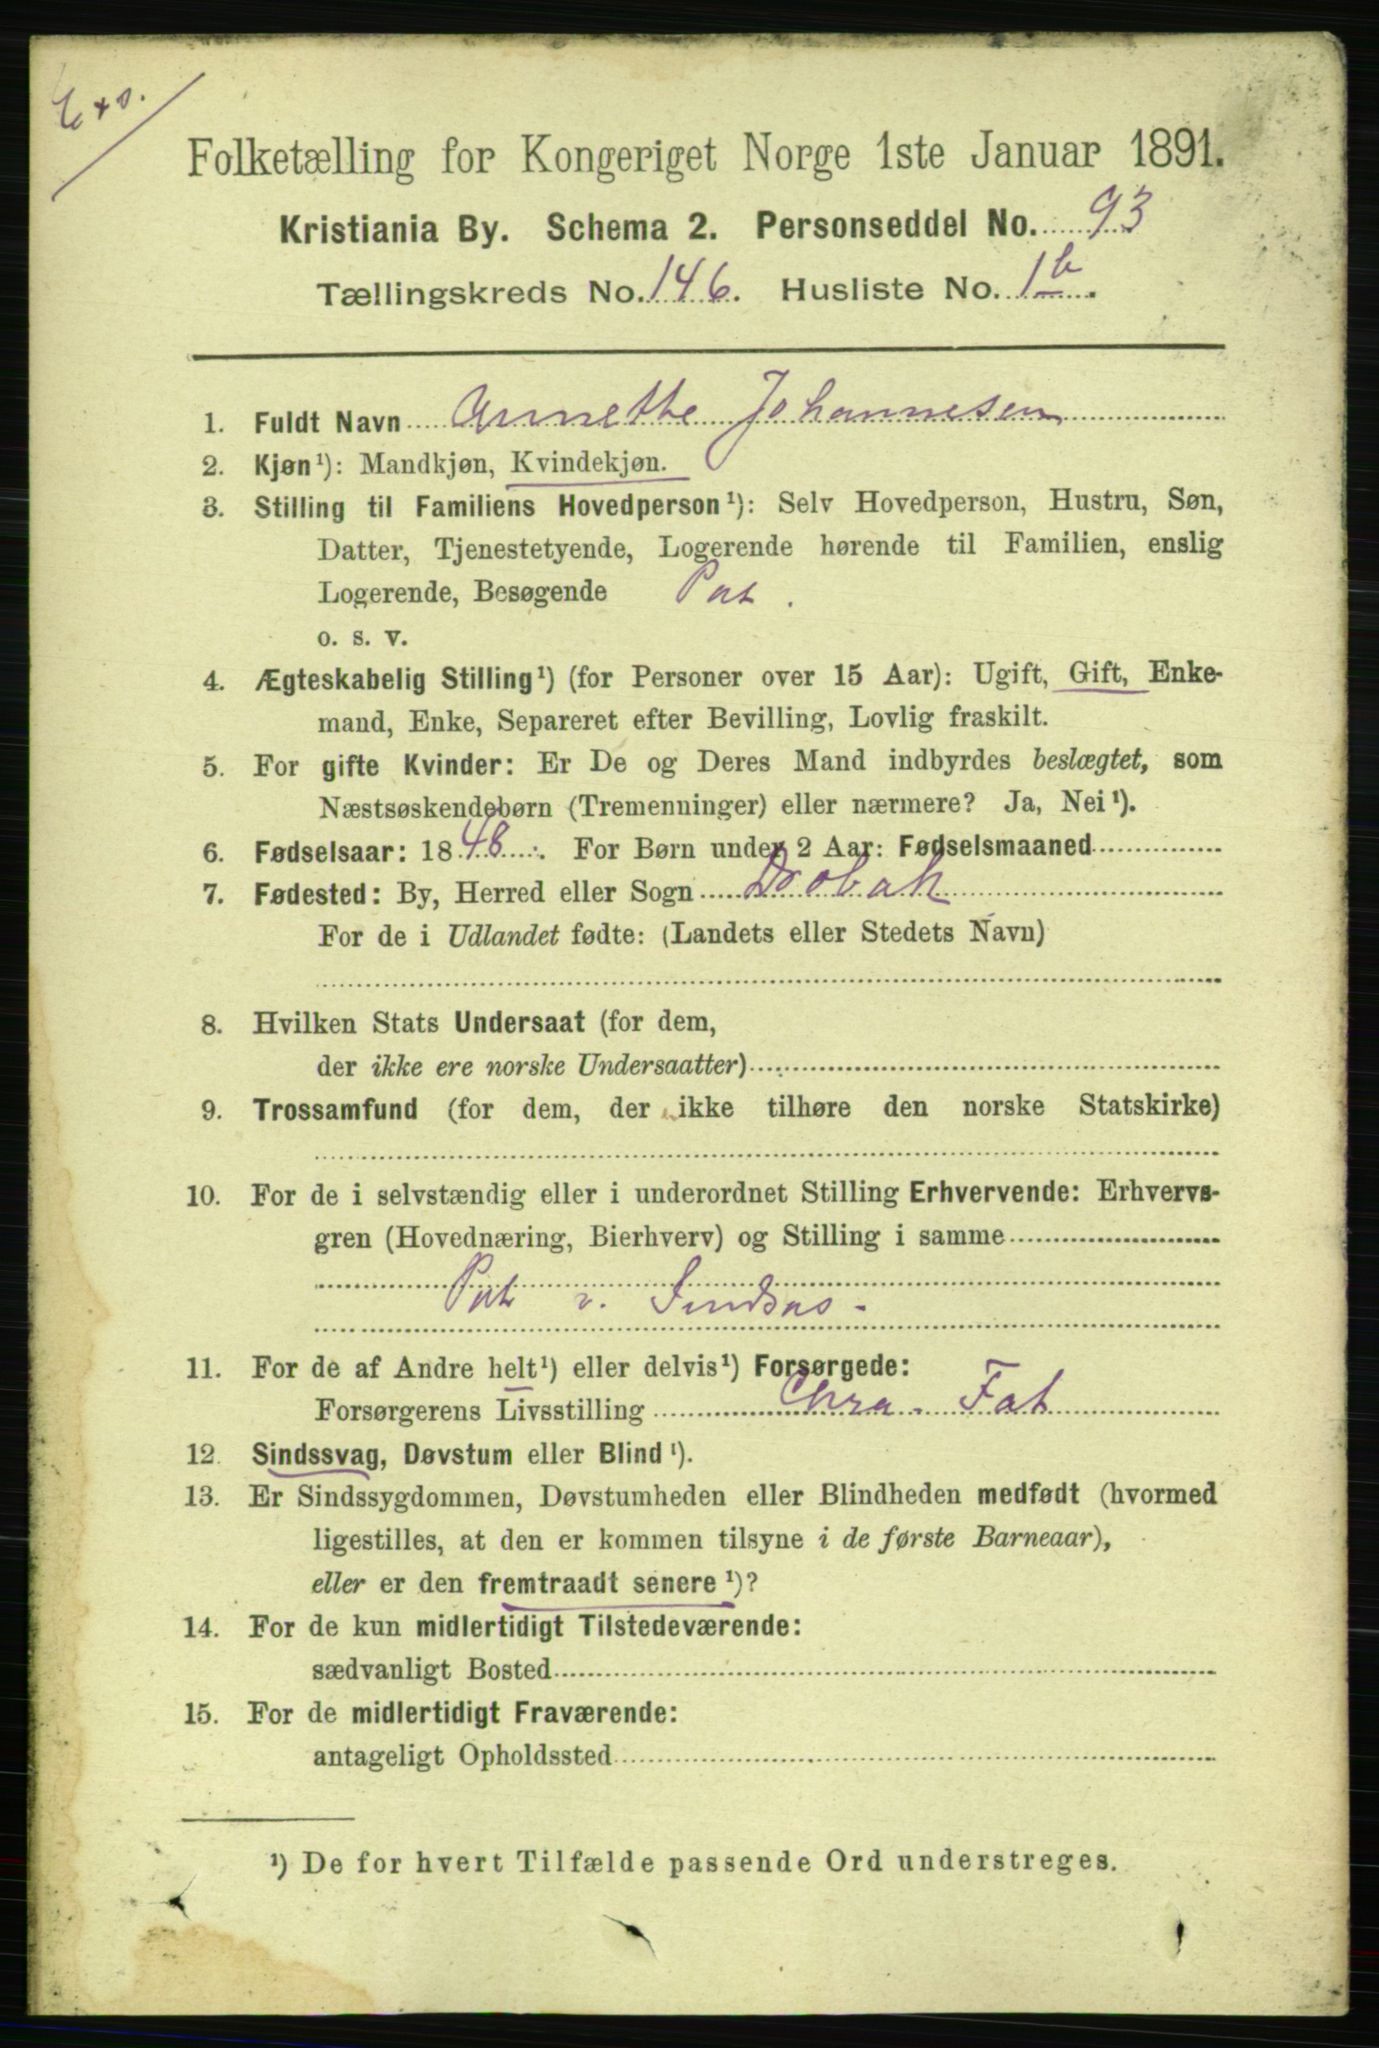 Exs.
Folketælling for Kongeriget Norge 1ste Januar 1891.
Kristiania By. Schema 2. Personseddel No. 93
Tællingskreds No. 146. Husliste No. 1b.
1. Fuldt Navn Annette Johannesen
2. Kjøn¹): Mandkjøn, Kvindekjøn.
3. Stilling til Familiens Hovedperson¹): Selv Hovedperson, Hustru, Søn,
Datter, Tjenestetyende, Logerende hørende til Familien, enslig
Logerende, Besøgende Pat.
o. s. v.
4. Ægteskabelig Stilling¹) (for Personer over 15 Aar): Ugift, Gift, Enke-
mand, Enke, Separeret efter Bevilling, Lovlig fraskilt.
5. For gifte Kvinder: Er De og Deres Mand indbyrdes beslægtet, som
Næstsøskendebørn (Tremenninger) eller nærmere? Ja, Nei¹).
6. Fødselsaar: 1848. For Børn under 2 Aar: Fødselsmaaned
7. Fødested: By, Herred eller Sogn Drøbak
For de i Udlandet fødte: (Landets eller Stedets Navn)
8. Hvilken Stats Undersaat (for dem,
der ikke ere norske Undersaatter)
9. Trossamfund (for dem, der ikke tilhøre den norske Statskirke)
10. For de i selvstændig eller i underordnet Stilling Erhvervende: Erhvervs-
gren (Hovednæring, Bierhverv) og Stilling i samme
Pat v. Sindsas.
11. For de af Andre helt¹) eller delvis¹) Forsørgede:
Forsørgerens Livsstilling Chra. Fat
12. Sindssvag, Døvstum eller Blind¹).
13. Er Sindssygdommen, Døvstumheden eller Blindheden medfødt (hvormed
ligestilles, at den er kommen tilsyne i de første Barneaar),
eller er den fremtraadt senere¹)?
14. For de kun midlertidigt Tilstedeværende:
sædvanligt Bosted
15. For de midlertidigt Fraværende:
antageligt Opholdssted
¹) De for hvert Tilfælde passende Ord understreges.